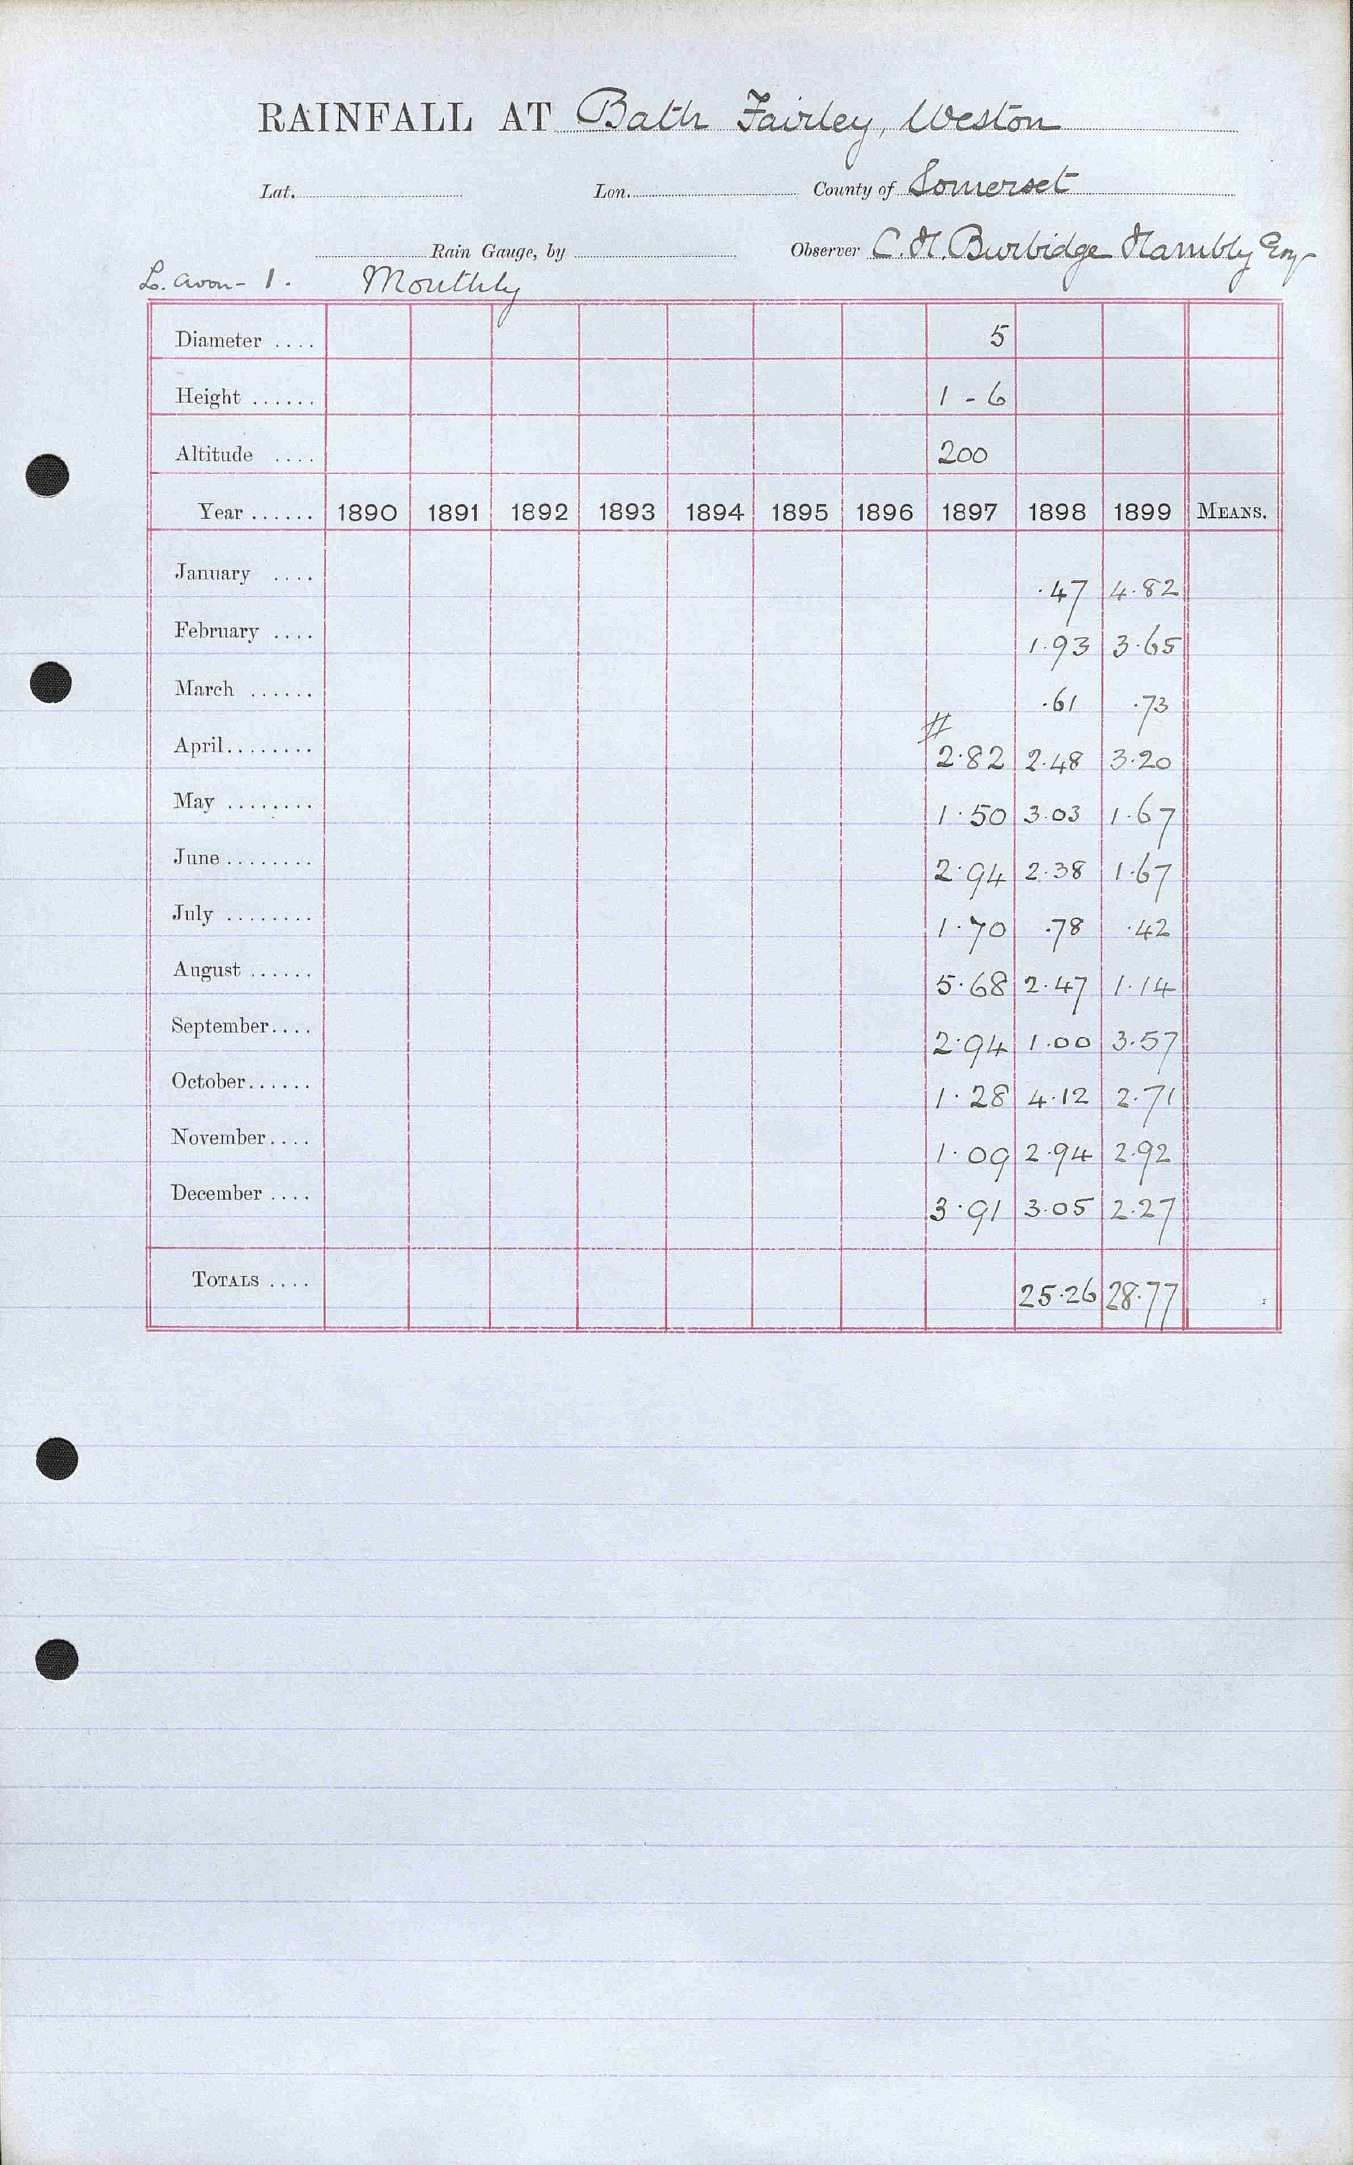 RAINFALL AT Bath Fairley, Weston
Lat. Lon. County of Somerset
Rain Gauge, by Observer C. H. Burbidge Hambly Esq
L. Avon - 1. Monthly
Diameter .... 5
Height ...... 1 - 6
Altitude .... 200
Year ...... 1890 1891 1892 1893 1894 1895 1896 1897 1898 1899 MEANS.
January .... .47 4.82
February .... 1.93 3.65
March ...... .61 .73
#
April........ 2.82 2.48 3.20
May ........ 1.50 3.03 1.67
June ........ 2.94 2.38 1.67
July ........ 1.70 .78 .42
August ...... 5.68 2.47 1.14
September.... 2.94 1.00 3.57
October...... 1.28 4.12 2.71
November.... 1.09 2.94 2.92
December .... 3.91 3.05 2.27
TOTALS .... 25.26 28.77